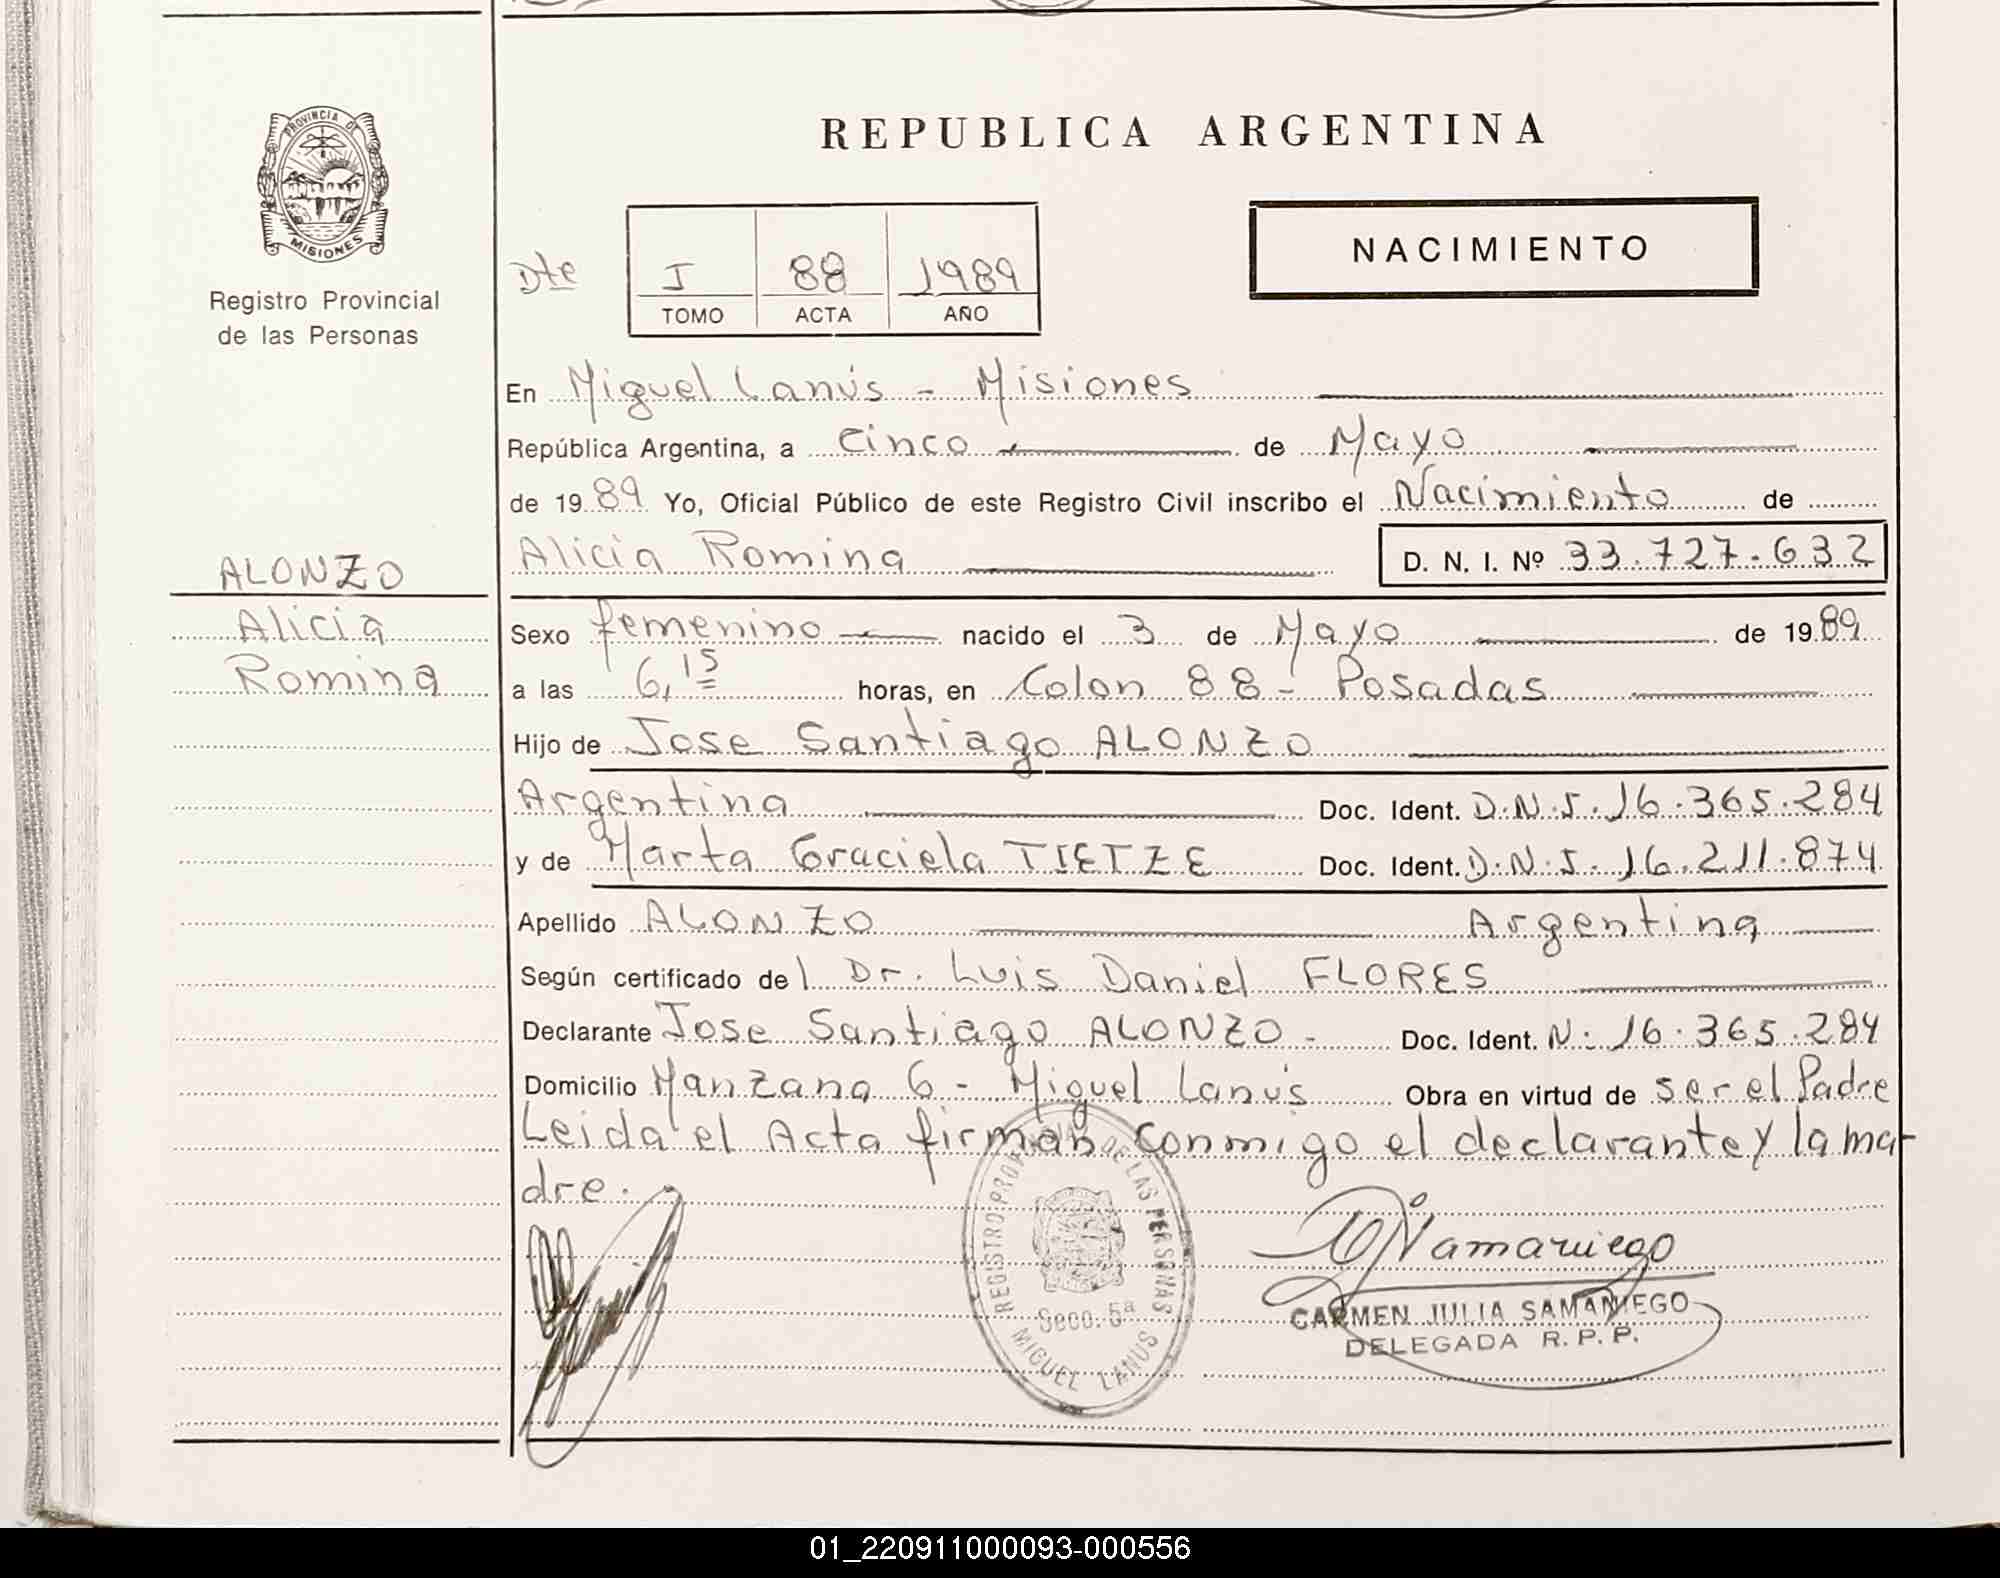 PROVINCIA DE
MISIONES
Registro Provincial
de las Personas
REPUBLICA ARGENTINA
NACIMIENTO
Dte
I 88 1989
TOMO ACTA AÑO
En Miguel Lanús - Misiones
República Argentina, a cinco de Mayo
de 1989 Yo, Oficial Público de este Registro Civil inscribo el Nacimiento de
Alicia Romina D. N. I. Nº 33.727.632
ALONZO
Alicia
Romina
Sexo femenino nacido el 3 de Mayo de 1989
a las 6,15 horas, en Colon 88 - Posadas
Hijo de Jose Santiago ALONZO
Argentina Doc. Ident. D.N.I. 16.365.284
y de Marta Graciela TIETZE Doc. Ident. D.N.I. 16.211.874
Apellido ALONZO Argentina
Según certificado del Dr. Luis Daniel FLORES
Declarante Jose Santiago ALONZO - Doc. Ident. N: 16.365.284
Domicilio Manzana 6 - Miguel Lanús Obra en virtud de ser el Padre
Leida el Acta firman conmigo el declarante y la ma-
dre.
REGISTRO PROVINCIAL DE LAS PERSONAS
Secc. 5ª
MIGUEL LANUS
CARMEN JULIA SAMANIEGO
DELEGADA R. P. P.
01_220911000093-000556